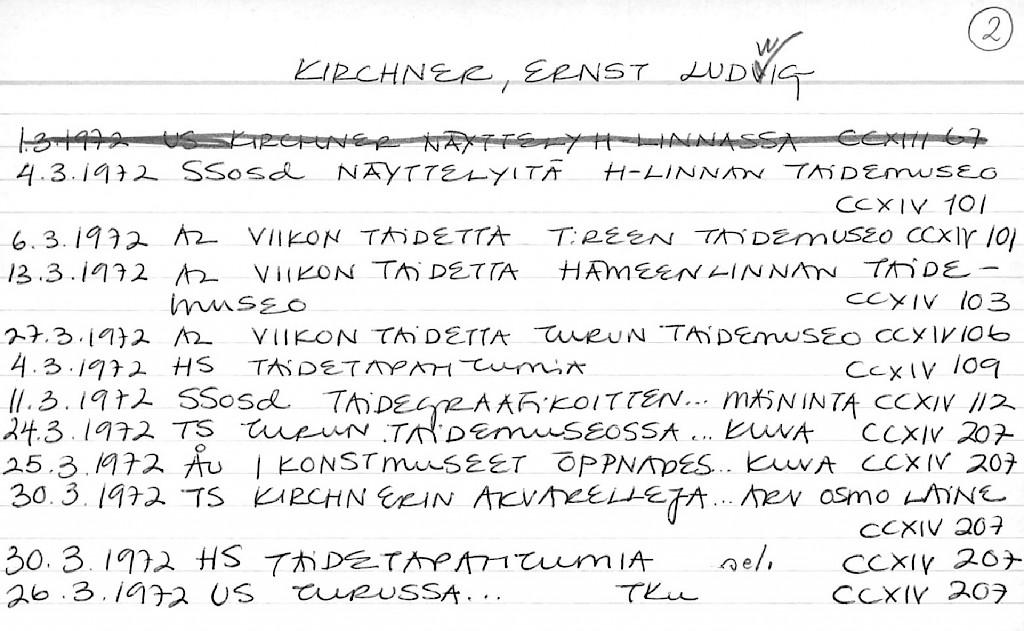 2
KIRCHNER, ERNST LUDWIG
1.3.1972 US KIRCHNER NÄYTTELY H LINNASSA CCXIII 67
4.3.1972 SSosd NÄYTTELYITÄ H-LINNAN TAIDEMUSEO
CCXIV 101
6.3.1972 AL VIIKON TAIDETTA T:REEN TAIDEMUSEO CCXIV 101
13.3.1972 AL VIIKON TAIDETTA HÄMEENLINNAN TAIDE-
MUSEO CCXIV 103
27.3.1972 AL VIIKON TAIDETTA TURUN TAIDEMUSEO CCXIV 106
4.3.1972 HS TAIDETAPAHTUMIA CCXIV 109
11.3.1972 SSosd TAIDEGRAAFIKOITTEN... MAININTA CCXIV 112
24.3.1972 TS TURUN TAIDEMUSEOSSA... KUVA CCXIV 207
25.3.1972 ÅU I KONSTMUSEET ÖPPNADES... KUVA CCXIV 207
30.3.1972 TS KIRCHNERIN AKVARELLEJA... ARV OSMO LAINE
CCXIV 207
30.3.1972 HS TAIDETAPAHTUMIA sel. CCXIV 207
26.3.1972 US TURUSSA... TKU CCXIV 207